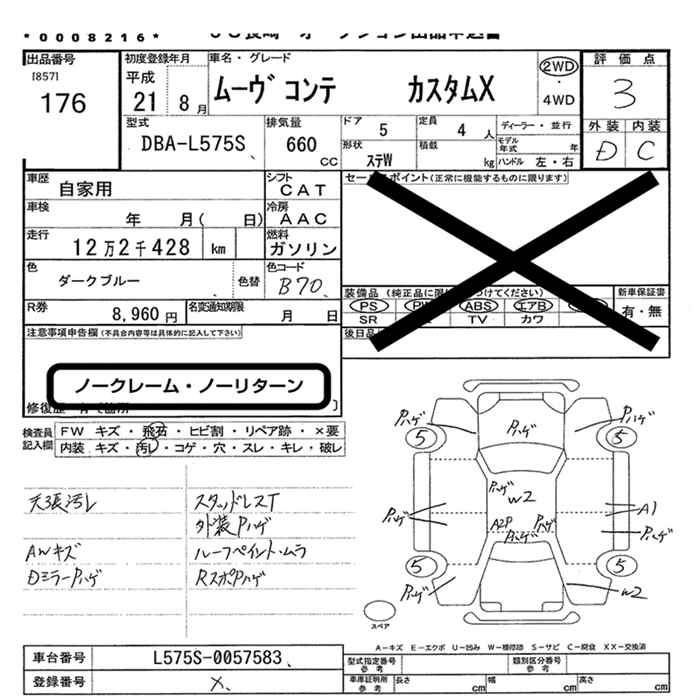 *0008216*
出品番号
[857]
176
初度登録年月
平成
21 8月
車名・グレード
ムーヴ コンテ カスタムX
2WD
・
4WD
評価点
3
外装 内装
D C
型式
DBA-L575S
排気量
660
cc
ドア 5
形状 ステW
定員 4 人
積載 kg
ディーラー・並行
モデル年式 年
ハンドル 左・右
車歴 自家用
シフト CAT
車検 年 月( 日)
冷房 AAC
走行 12万2千428 km
燃料 ガソリン
色 ダークブルー 色替
色コード B70
R券 8,960円
名変通知期限 月 日
セールスポイント(正常に機能するものに限ります)
装備品
PS ABS エアB
SR TV カワ
新車保証書
有・無
後日品
注意事項申告欄(不具合内容等は具体的に記入して下さい)
ノークレーム・ノーリターン
検査員記入欄
FW キズ・飛石・ヒビ割・リペア跡・×要
内装 キズ・汚レ・コゲ・穴・スレ・キレ・破レ
天張汚レ
AWキズ
DミラーPハゲ
スタッドレスT
外装Pハゲ
ルーフペイントムラ
RスポPハゲ
Pハゲ Pハゲ Pハゲ
5 5
Pハゲ W2
Pハゲ A1
A2P Pハゲ
Pハゲ Pハゲ
5 5
Pハゲ W2
スペア
A-キズ E-エクボ U-凹み W-補修跡 S-サビ C-腐食 XX-交換済
車台番号 L575S-0057583
登録番号 ×
型式指定番号 参考
類別区分番号 参考
車庫証明所 参考
長さ cm 幅 cm 高さ cm